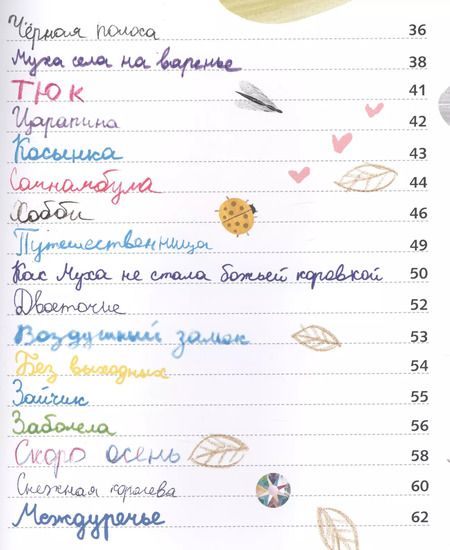 Чёрная полоса 36
Муха села на варенье 38
ТЮК 41
Царапина 42
Косынка 43
Сомнамбула 44
Хобби 46
Путешественница 49
Как Муха не стала божьей коровкой 50
Двоеточие 52
Воздушный замок 53
Без выходных 54
Зайчик 55
Заболела 56
Скоро осень 58
Снежная королева 60
Междуречье 62